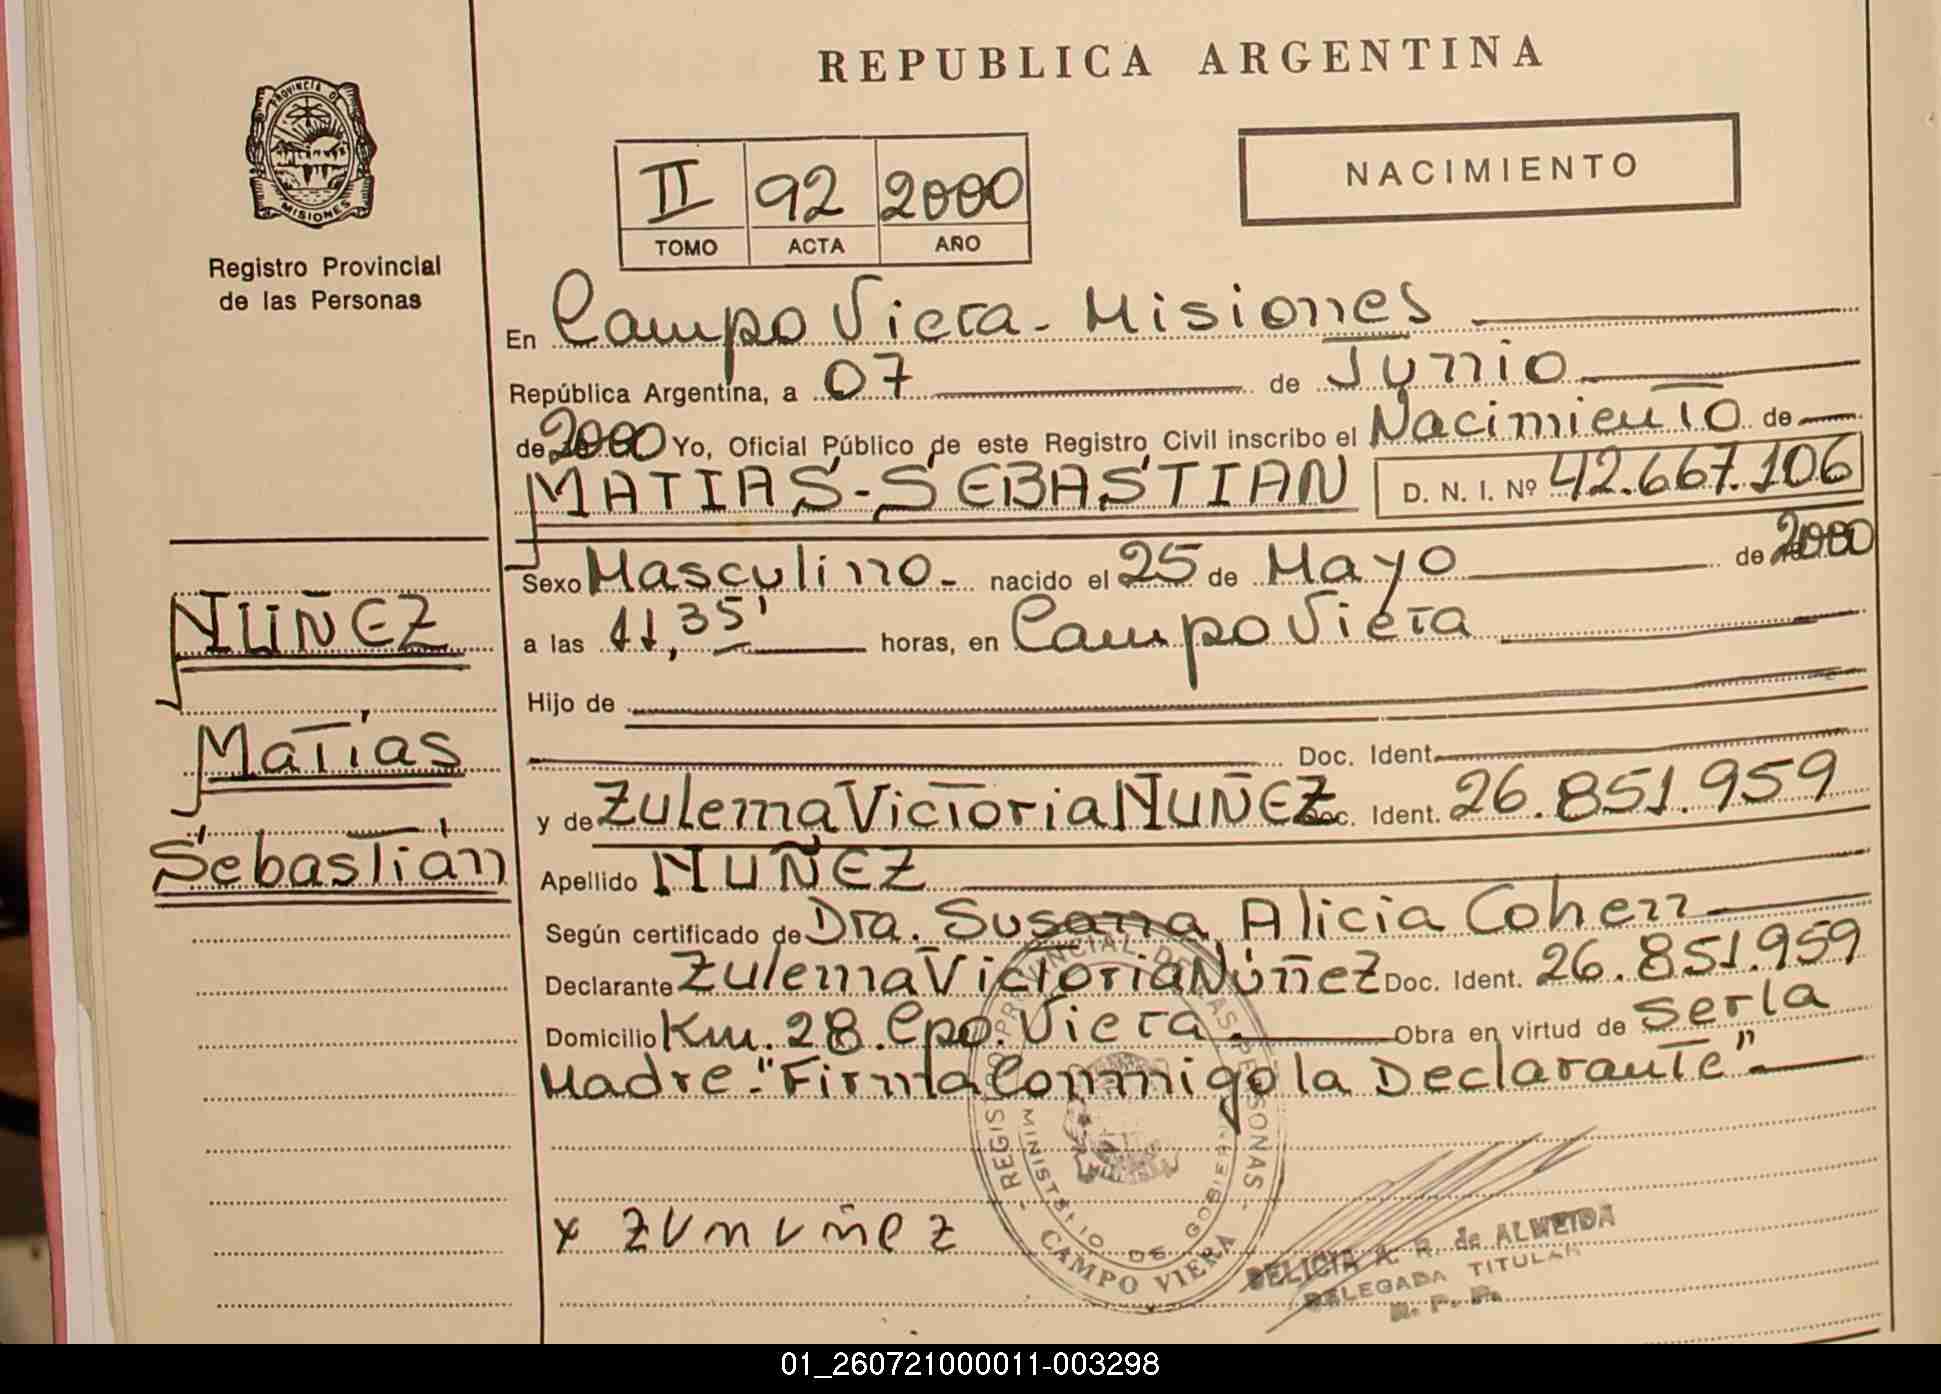 REPUBLICA ARGENTINA
PROVINCIA DE
MISIONES
Registro Provincial
de las Personas
II 92 2000
TOMO ACTA AÑO
NACIMIENTO
En Campo Viera - Misiones
República Argentina, a 07 de Junio
de 2000 Yo, Oficial Público de este Registro Civil inscribo el Nacimiento de
MATIAS - SEBASTIAN D. N. I. Nº 42.667.106
Sexo Masculino - nacido el 25 de Mayo de 2000
a las 11,35' horas, en Campo Viera
Hijo de
Doc. Ident.
y de Zulema Victoria NUÑEZ Doc. Ident. 26.851.959
Apellido NUÑEZ
Según certificado de Dra. Susana Alicia Cohen
Declarante Zulema Victoria Núñez Doc. Ident. 26.851.959
Domicilio Km. 28. Cpo. Viera. Obra en virtud de serla
Madre - "Firma Conmigo la Declarante" -
NUÑEZ
Matías
Sebastián
x ZVnuñez
REGISTRO PROVINCIAL DE LAS PERSONAS
MINISTERIO DE GOBIERNO
CAMPO VIERA
DELICIA A. R. de ALMEIDA
DELEGADA TITULAR
R. P. P.
01_260721000011-003298